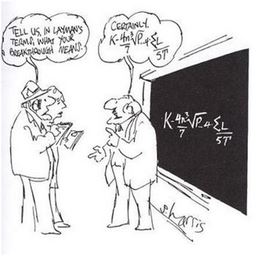 TELL US, IN LAYMAN'S
TERMS, WHAT YOUR
BREAKTHROUGH MEANS.
CERTAINLY.
K-4n³/7 √P + ΣL/5T
K-4n³/7 √P + ΣL/5T
S. Harris